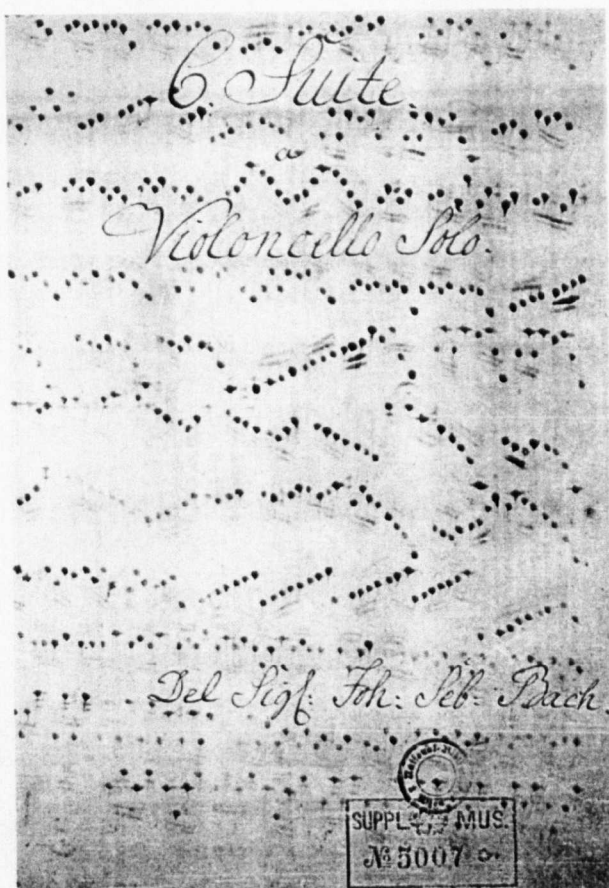 6. Suite.
a
Violoncello Solo.
Del Sigl. Joh: Seb. Bach.
SUPPL MUS.
No 5007